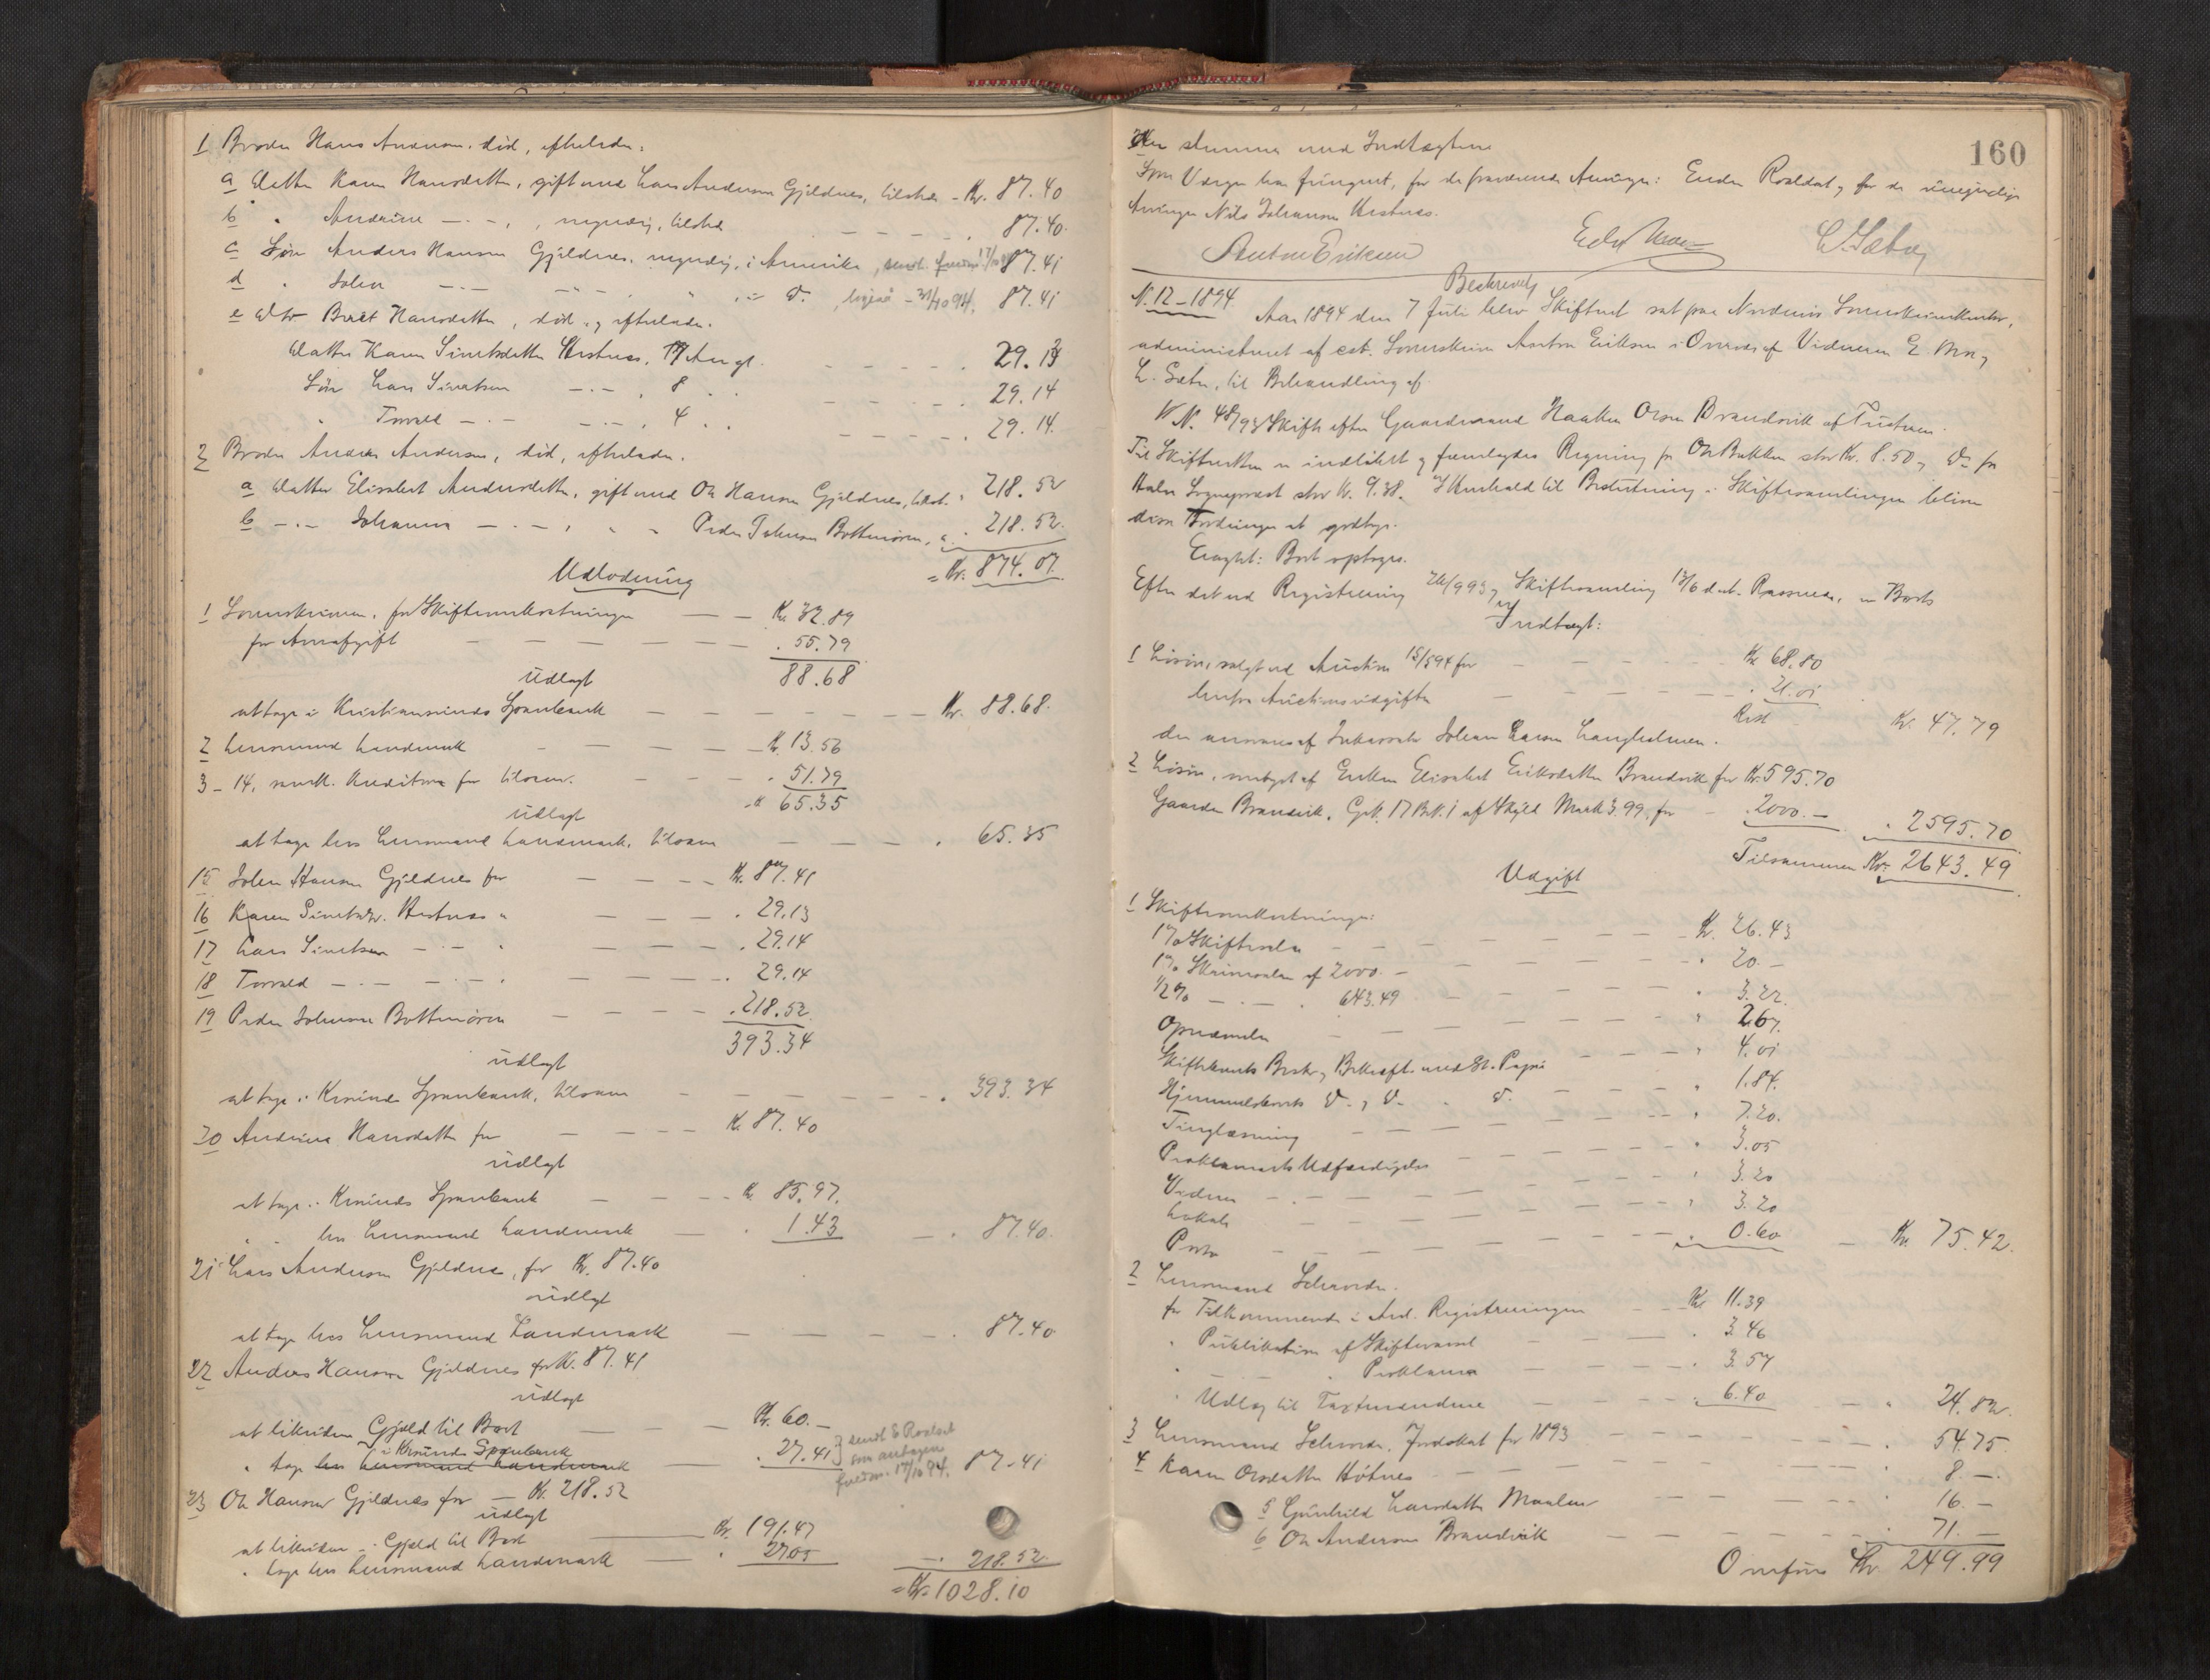 1 Broder Hans Andersen, död, efterlader:
a Datter Karen Hansdatter, gift med Lars Andersen Gjeldnes, tilstede - Kr. 87.40
b " Andrine — " — , myndig, tilstede — — — 87.40.
c Søn Anders Hansen Gjeldnes, myndig, i Amerika, sendt 87.41
d " Johan — " — — " — " — " — D. 31/10 94. 87.41
e Dtr Beret Hansdatter, död, og efterlader.
Datter Karen Sivertsdatter Hestnes, 17 Aar gl. — — 29.13
Søn Lars Sivertsen — " — , 8 " " — — — 29.14
" Torvald — " — — " — , 4 " " — — — 29.14.
2 Broder Anders Andersen, död, efterlader.
a Datter Elisabet Andersdatter, gift med Ole Hansen Gjeldnes, tilst. " 218.52
b — " — Johanna — " — , " " Peder Johnsen Bottenören, " 218.52.
= Kr. 874.07.
Udlodning
1 Sorenskriveren, for Skifteomkostninger — — Kr. 32.89
for Arveafgift — — — — . 55.79
88.68
udlagt
at tage i Kristianssunds Sparebank — — — — — Kr. 88.68.
2 Lensmand Landmark — — — — Kr. 13.56
3 – 14, Kreditorer for tilsam. — — — . 51.79
" 65.35
udlagt
at tage hos Lensmand Landmark, tilsam — — — . 65.35
15 Johan Hansen Gjeldnes for — — — Kr. 87.41
16 Karen Sivertsdr. Hestnes " — — — . 29.13
17 Lars Sivertsen — " — " — — — . 29.14
18 Torvald — " — — " — " — — — . 29.14
19 Peder Johnsen Bottenören — — — .218.52.
393.34
udlagt
at tage i Krsunds Sparebank, tilsam — — — — — . 393.34
20 Andrine Hansdatter for — — — Kr. 87.40
udlagt
at tage i Krsunds Sparebank — — — Kr. 85.97.
" " hos Lensmand Landmark — . 1.43 — . 87.40.
21 Lars Andersen Gjeldnes, for Kr. 87.40
udlagt
at tage hos Lensmand Landmark — — — — . 87.40
22 Anders Hansen Gjeldnes for Kr. 87.41
udlagt
at likvidere Gjæld til Boet — — — Kr. 60. —
i Krsunds Sparebank
" tage hos Lensmand Landmark — . 27.41 sendt E Roaldset som 17/10 94. 87.41
23 Ole Hansen Gjeldnes for — Kr. 218.52
udlagt
at likvidere Gjæld til Boet — Kr. 191.47
" tage hos Lensmand Landmark — . 27.05 — . 218.52.
= Kr. 1028.10
160
der stemmer med Indtægterne
Som Værger har fungeret, for de fraværende Arvinger: Enden Roaldset, og for de umyndige
Arvinger Nils Johansen Hestnes.
Anton Eriksen C. Sæter
Beskrevet
N. 12 – 1894 Aar 1894 den 7 Juli blev Skifteret sat paa Nordmørs Sorenskriverkontor,
administreret af cst. Sorenskriver Anton Eriksen i Overvær af Vidnerne E. Moe og
C. Sæter, til Behandling af
V. N. 48/93 Skifte efter Gaardmand Haaken Olsen Brandsvik af Tustern.
Til Skifteretten er indløbet og fremlagdes Regning fra Ole Bakken stor Kr. 8.50, og D. fra
Halse Sogneprest stor Kr. 9.38. I Henhold til Beslutning i Skiftesamlingen blive
disse Fordringer at godtage.
Eragtet: Boet optages.
Efter det ved Registrering 26/9 93 og Skiftesamling 13/6 d. a. Passerede, er Boets
Indtægt:
1 Løsøre, solgt ved Auktion 15/5 94 for — — — — Kr. 68.80
herfra Auktionsudgifter — — — — — . 21.01
Rest — Kr. 47.79
der anvises af Inkassator Johan Larsen Langholmen.
2 Løsøre, modtaget af Enken Elisabet Eriksdatter Brandsvik for Kr. 595.70
Gaarden Brandsvik, G.No. 17 B.No. 1 af Skyld Mark 3.99, for — . 2000. — . 2595.70
Tilsammen Kr. 2643.49
Udgift
1 Skifteomkostninger:
1% Skiftesalær — — — — — — — Kr. 26.43
1% Skriversalær af 2000. — — — — — — " 20. —
½% — " — . 643.49 — — — — — " 3.22.
Opnævnelse — — — — — — — " 2.67.
Skiftebrevets Beskr. og Bekræft. med St. Papir — — — " 4.01
Hjemmelsbrevets D. og D. " D. — — — — " 1.84.
Tinglæsning — — — — — — — " 7.20.
Proklamaets Udfærdigelse — — — — — " 3.05
Vidner — " — — — — — — — " 3.20
Lokale — — — — — — — — " 3.20
Porto — — — — — — — . 0.60 — Kr. 75.42.
2 Lensmand Schrøder.
for Tilkommende i Anl. Registreringen — — Kr. 11.39
" Publikation af Skiftesaml — — — . 3.46
" " Proklama — — — — . 3.57
" Udlæg til Taxtmændene — — — — . 6.40 — — " 24.82.
3 Lensmand Schrøder, Fordskat for 1893 — — — — — . 54.75.
4 Karen Olsdatter Höknes — — — — — — — " 8. —.
5 Gunhild Larsdatter Maalen — — — — — " 16. —
6 Ole Andersen Brandsvik — — — — — " 71. —
Omføres Kr. 249.99